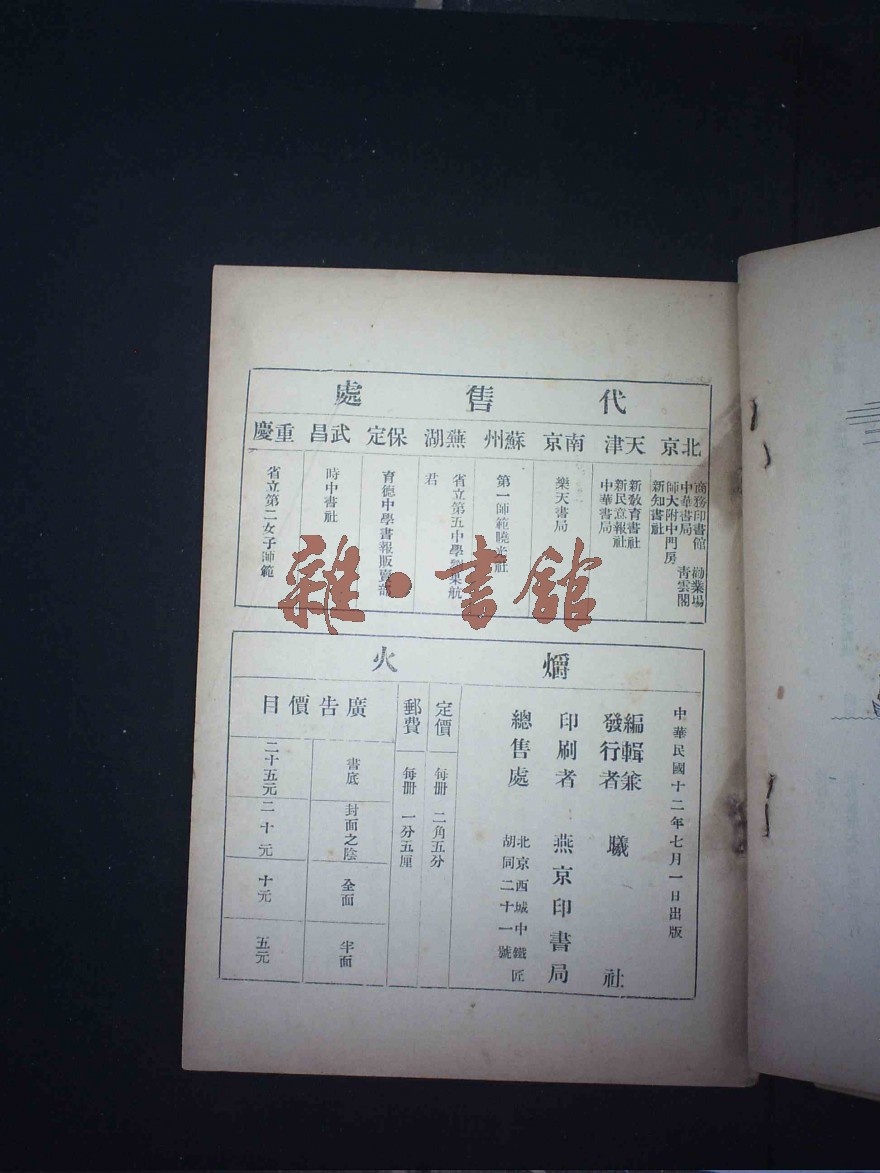 代售處
北京
商務印書館 勸業場
中華書局 青雲閣
師大附中門房
新知書社
天津
新教育書社
新民意報社
中華書局
南京
樂天書局
蘇州
第一師範曉光社
蕪湖
省立第五中學 集航
君
保定
育德中學書報販賣部
武昌
時中書社
重慶
省立第二女子師範
雜·書館
爝火
中華民國十二年七月一日出版
編輯兼
發行者 曦社
印刷者 燕京印書局
總售處 北京西城中鐵匠
胡同二十一號
定價 每冊 二角五分
郵費 每冊 一分五厘
廣告價目
書底 二十五元
封面之陰 二十元
全面 十元
半面 五元